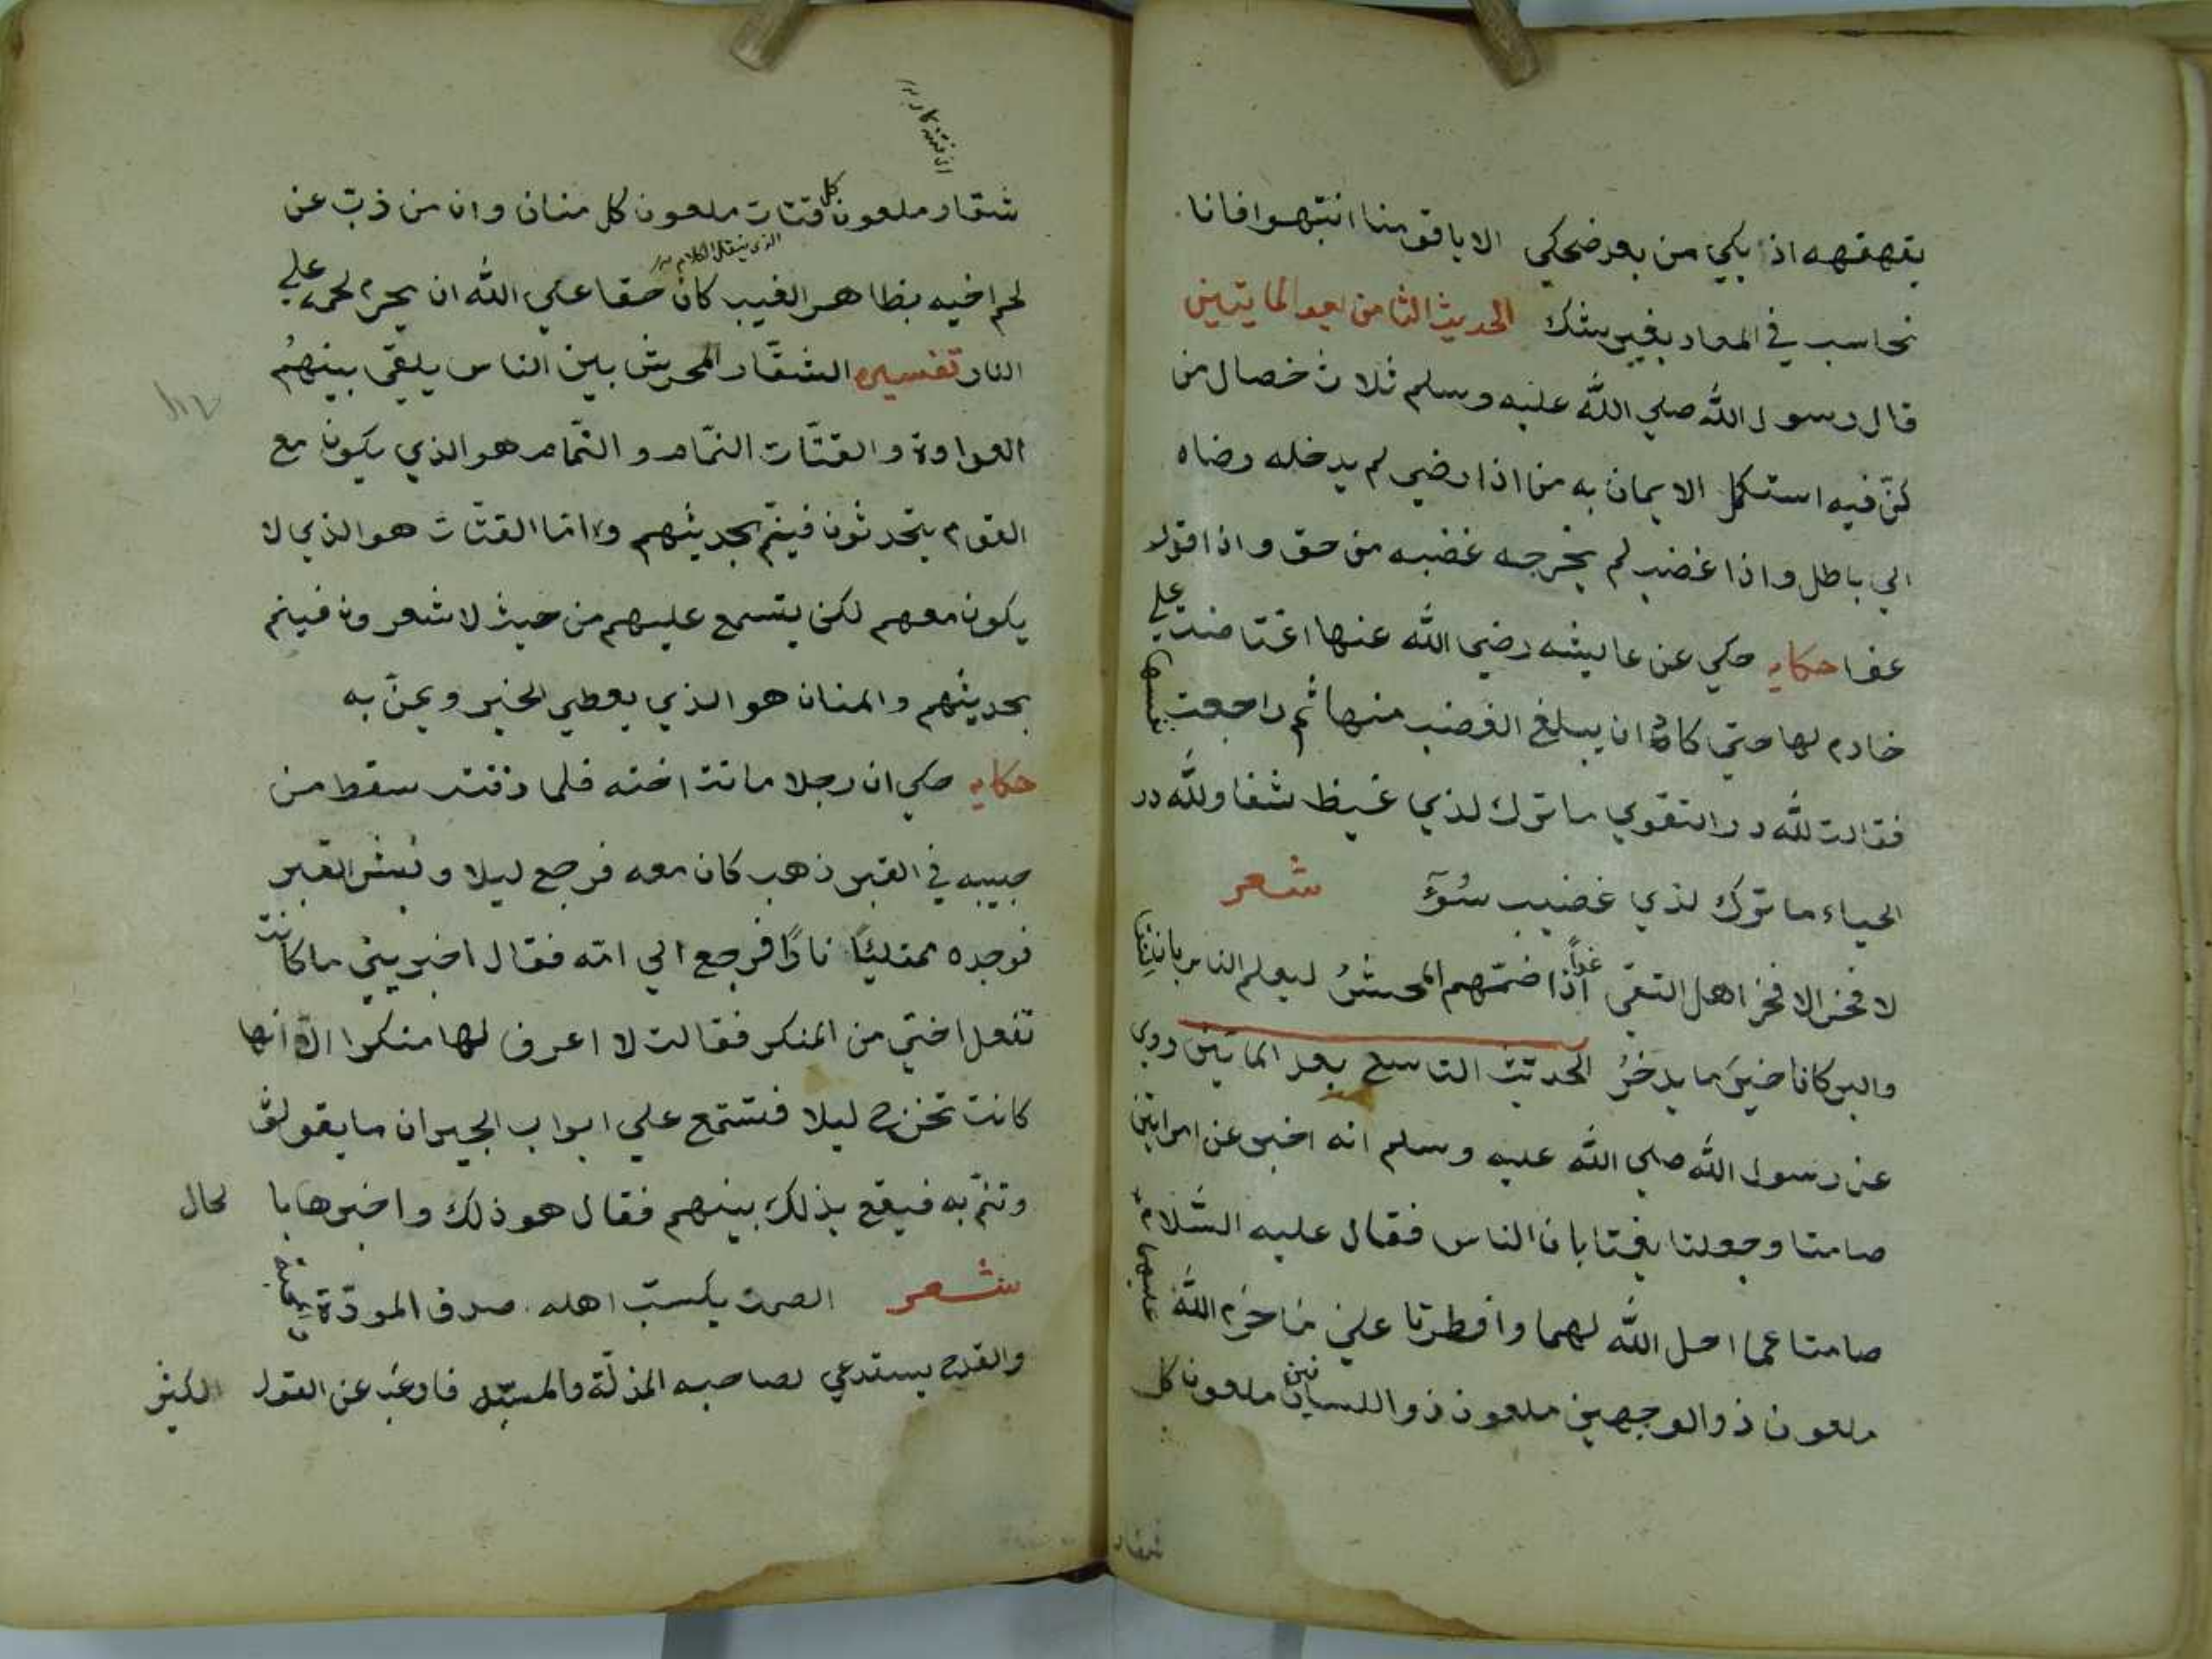 يقهقهه اذ ابكي من بعد ضحكي الا يا قومنا انتبهوا فانا
نحاسب في المعاد بغير شك الحديث الثامن بعد المايتين
قال رسول الله صلي الله عليه وسلم ثلاث خصال من
كنّ فيه استكمل الايمان به من اذا رضي لم يدخله رضاه
الي باطل واذا غضب لم يخرجه غضبه من حق واذا قدر
عفا حكايه حكي عن عايشه رضي الله عنها اغتاضت علي
خادم لها حتي كاد ان يبلغ الغضب منها ثم راجعت نفسها
فقالت لله در التقوي ما ترك لذي غيظ شفا ولله در
الحياء ما ترك لذي غضيب سُوءٓ شعر
لا فخر الا فخر اهل التقي غداً اذا ضمّهم المحشرُ ليعلم الناس بان التقا
والبر كانا خيرَ ما يدخرُ الحديث التاسع بعد المايتين روي
عن رسول الله صلي الله عليه وسلم انه اخبر عن امراتين
صامتا وجعلتا يغتابان الناس فقال عليه السّلام
صامتا عما احل الله لهما وافطرتا علي ما حرم الله عليهما
ملعون ذو الوجهين ملعون ذو اللسانين ملعون كل
شقار
شقار ملعون كل قتات ملعون كل منان وان من ذبّ عن
الذي ينقل الكلام
لحم اخيه بظاهر الغيب كان حقا علي الله ان يحرم لحمه علي
النار تفسيره الشقّار المحرش بين الناس يلقي بينهُم
العداوة والقتّات النمّام والنمّام هو الذي يكون مع
القوم يتحدثون فينمّ بحديثهم وامّا القتّات هو الذي لا
يكون معهم لكن يتسمع عليهم من حيث لا شعرون فينم
بحديثهم والمنان هو الذي يعطي الخير ويمنّ به
حكايه حكي ان رجلا ماتت اخته فلما دفنت سقط من
جيبه في القبر ذهب كان معه فرجع ليلا ونبش القبر
فوجده ممتليًا نارًا فرجع الي امّه فقال اخبريني ما كانت
تفعل اختي من المنكر فقالت لا اعرف لها منكرا الّا انها
كانت تخرج ليلا فتستمع علي ابواب الجيران ما يقولون
وتنمّ به فيقع بذلك بينهم فقال هو ذلك واخبرها با لحال
شعر الصمت يكسب اهله صدق المودّة
والقدح يستدعي لصاحبه المذلّة والمسبّه فارغب عن القول الكثير